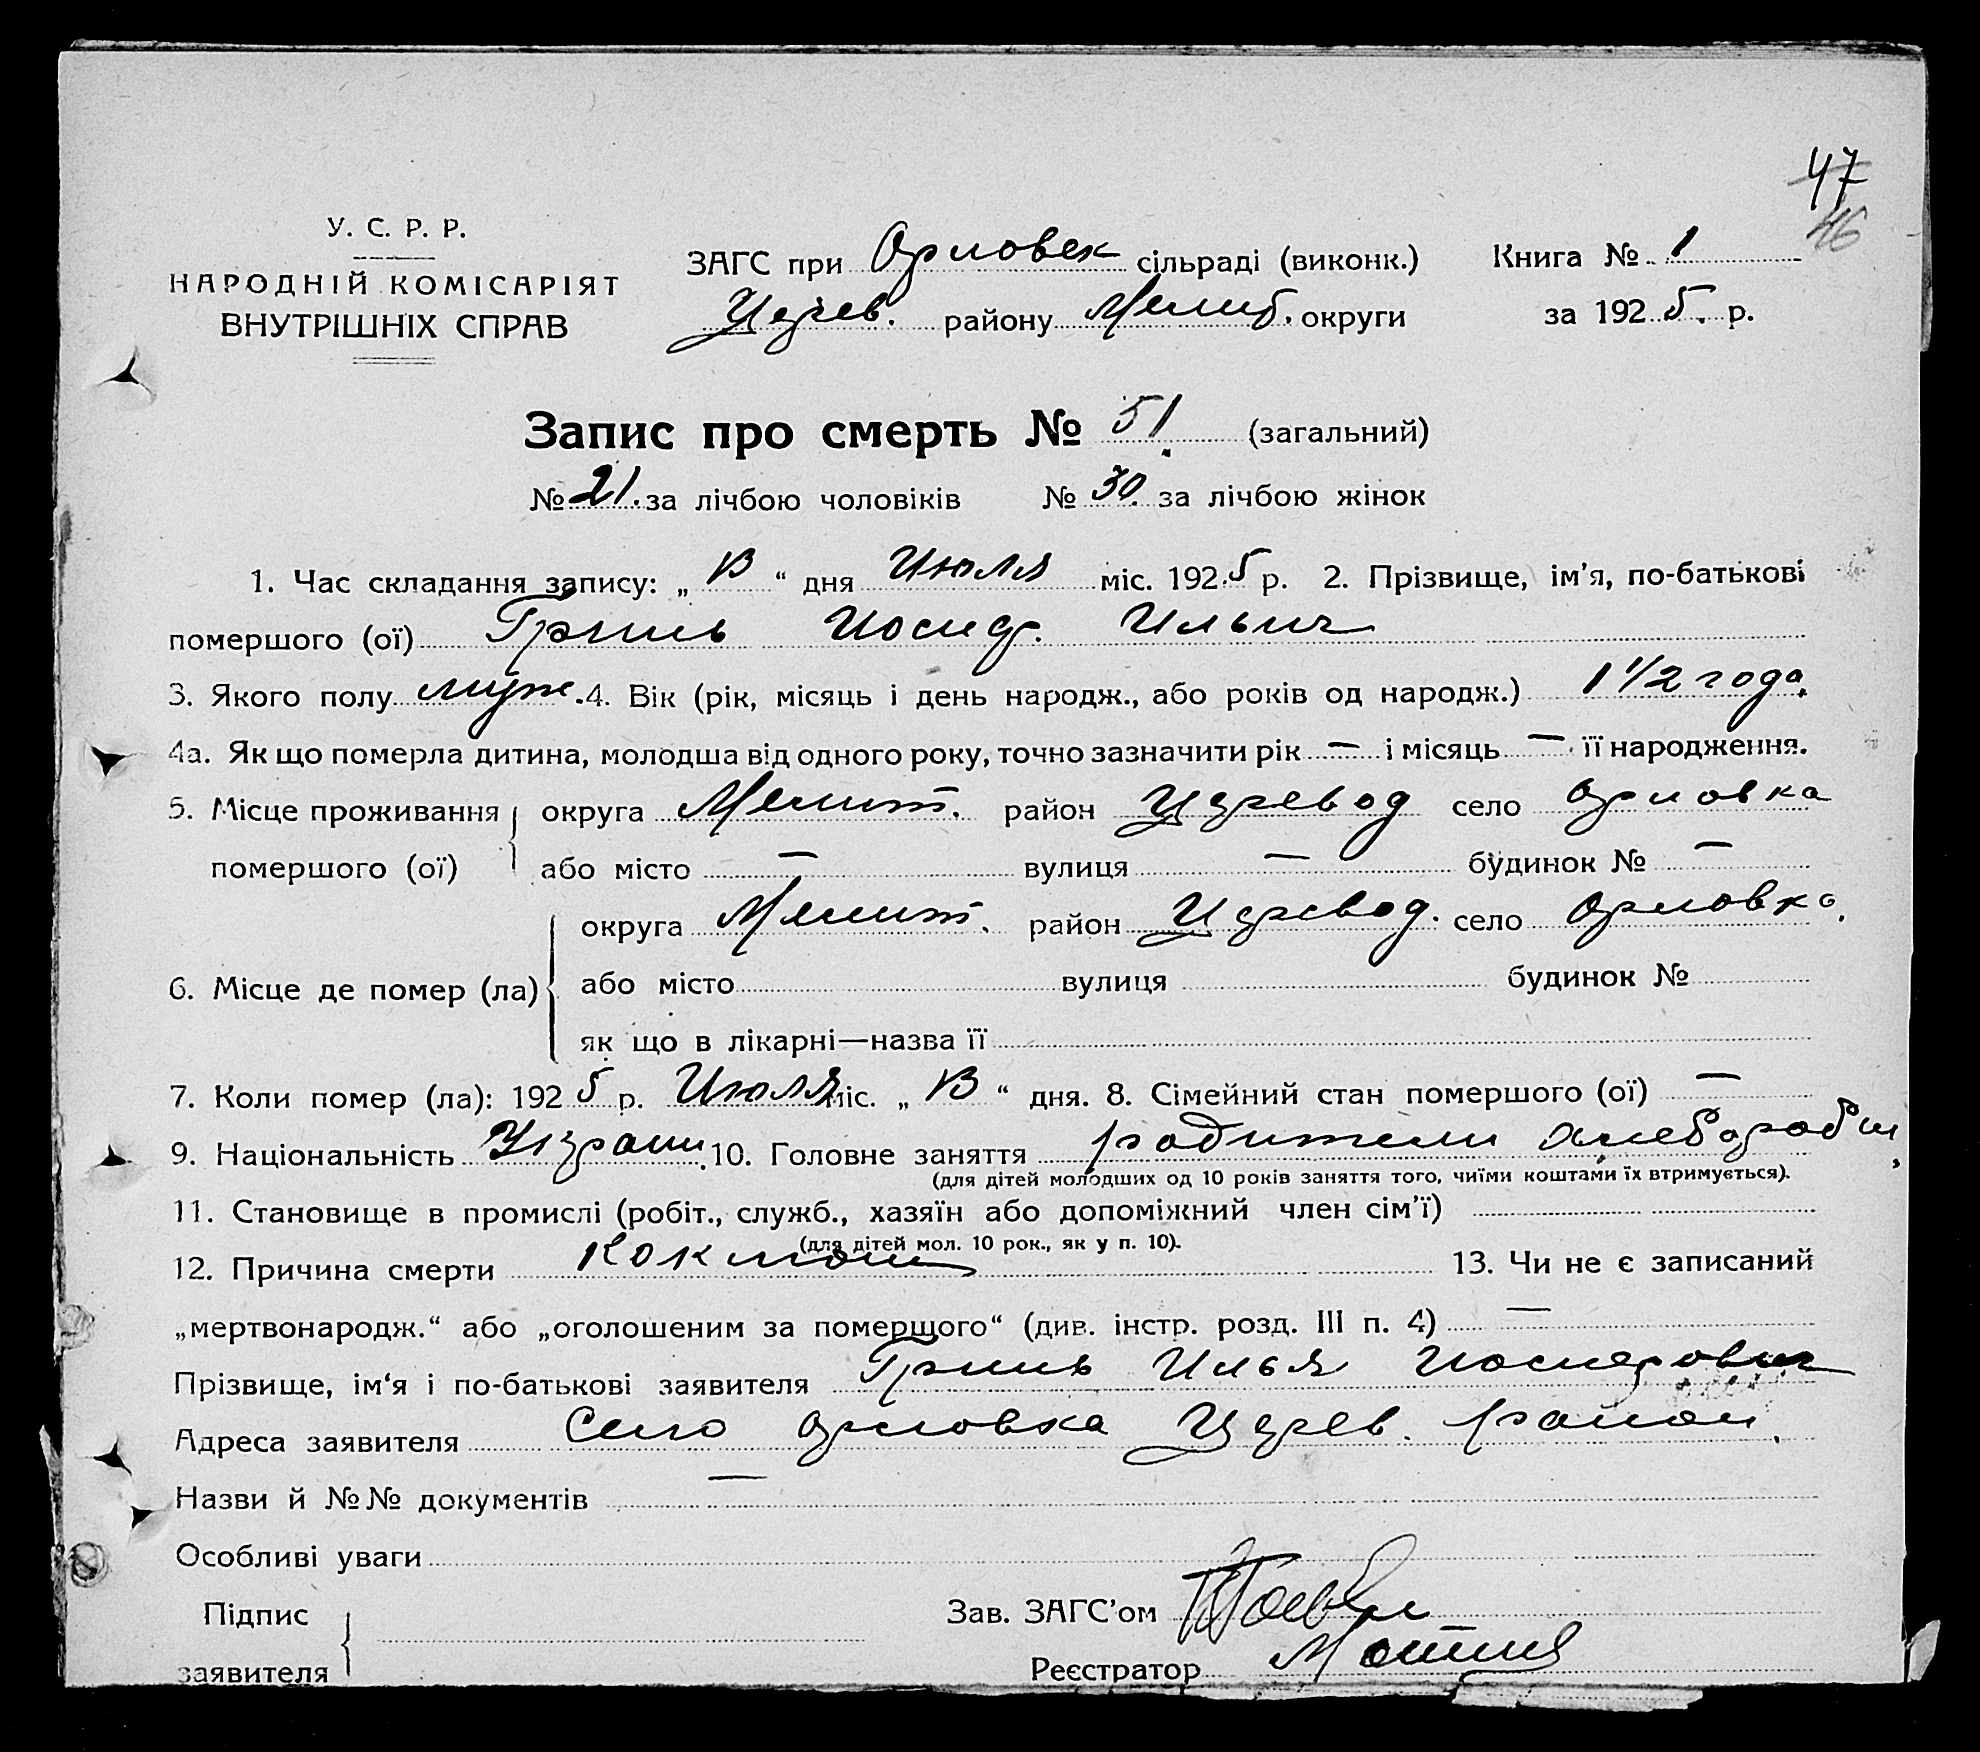 47
46
У. С. Р. Р.
НАРОДНІЙ КОМІСАРІЯТ
ВНУТРІШНІХ СПРАВ
ЗАГС при Орловск сільраді (виконк.)
Книга № 1
району Мелит. округи
за 1925 р.
Запис про смерть № 51. (загальний)
№ 21. за лічбою чоловіків № 30. за лічбою жінок
1. Час складання запису: „ “ дня Июля міс. 1925 р. 2. Прізвище, ім’я, по-батькові
помершого (ої) Гриль Иосиф. Ильич
3. Якого полу муж. 4. Вік (рік, місяць і день народж., або років од народж.) 1 1/2 года.
4а. Як що померла дитина, молодша від одного року, точно зазначити рік — і місяць — її народження.
5. Місце проживання помершого (ої)
округа Мелит. район село Орловка
або місто — вулиця — будинок № —
6. Місце де помер (ла)
округа Мелит. район село Орловка.
або місто вулиця будинок №
як що в лікарні—назва її
7. Коли помер (ла): 1925 р. Июля міс. „ “ дня. 8. Сімейний стан помершого (ої) —
9. Національність Украин. 10. Головне заняття родители хлебороби,
(для дітей молодших од 10 років заняття того, чиїми коштами їх втримується).
11. Становище в промислі (робіт., служб., хазяїн або допоміжний член сім’ї)
(для дітей мол. 10 рок., як у п. 10).
12. Причина смерти Коклюш 13. Чи не є записаний
„мертвонародж.“ або „оголошеним за померщого“ (див. інстр. розд. III п. 4) —
Прізвище, ім‘я і по-батькові заявителя Гриль Илья Иосифович
Адреса заявителя Село Орловка район.
Назви й №№ документів —
Особливі уваги
Підпис заявителя
Зав. ЗАГС’ом
Реєстратор